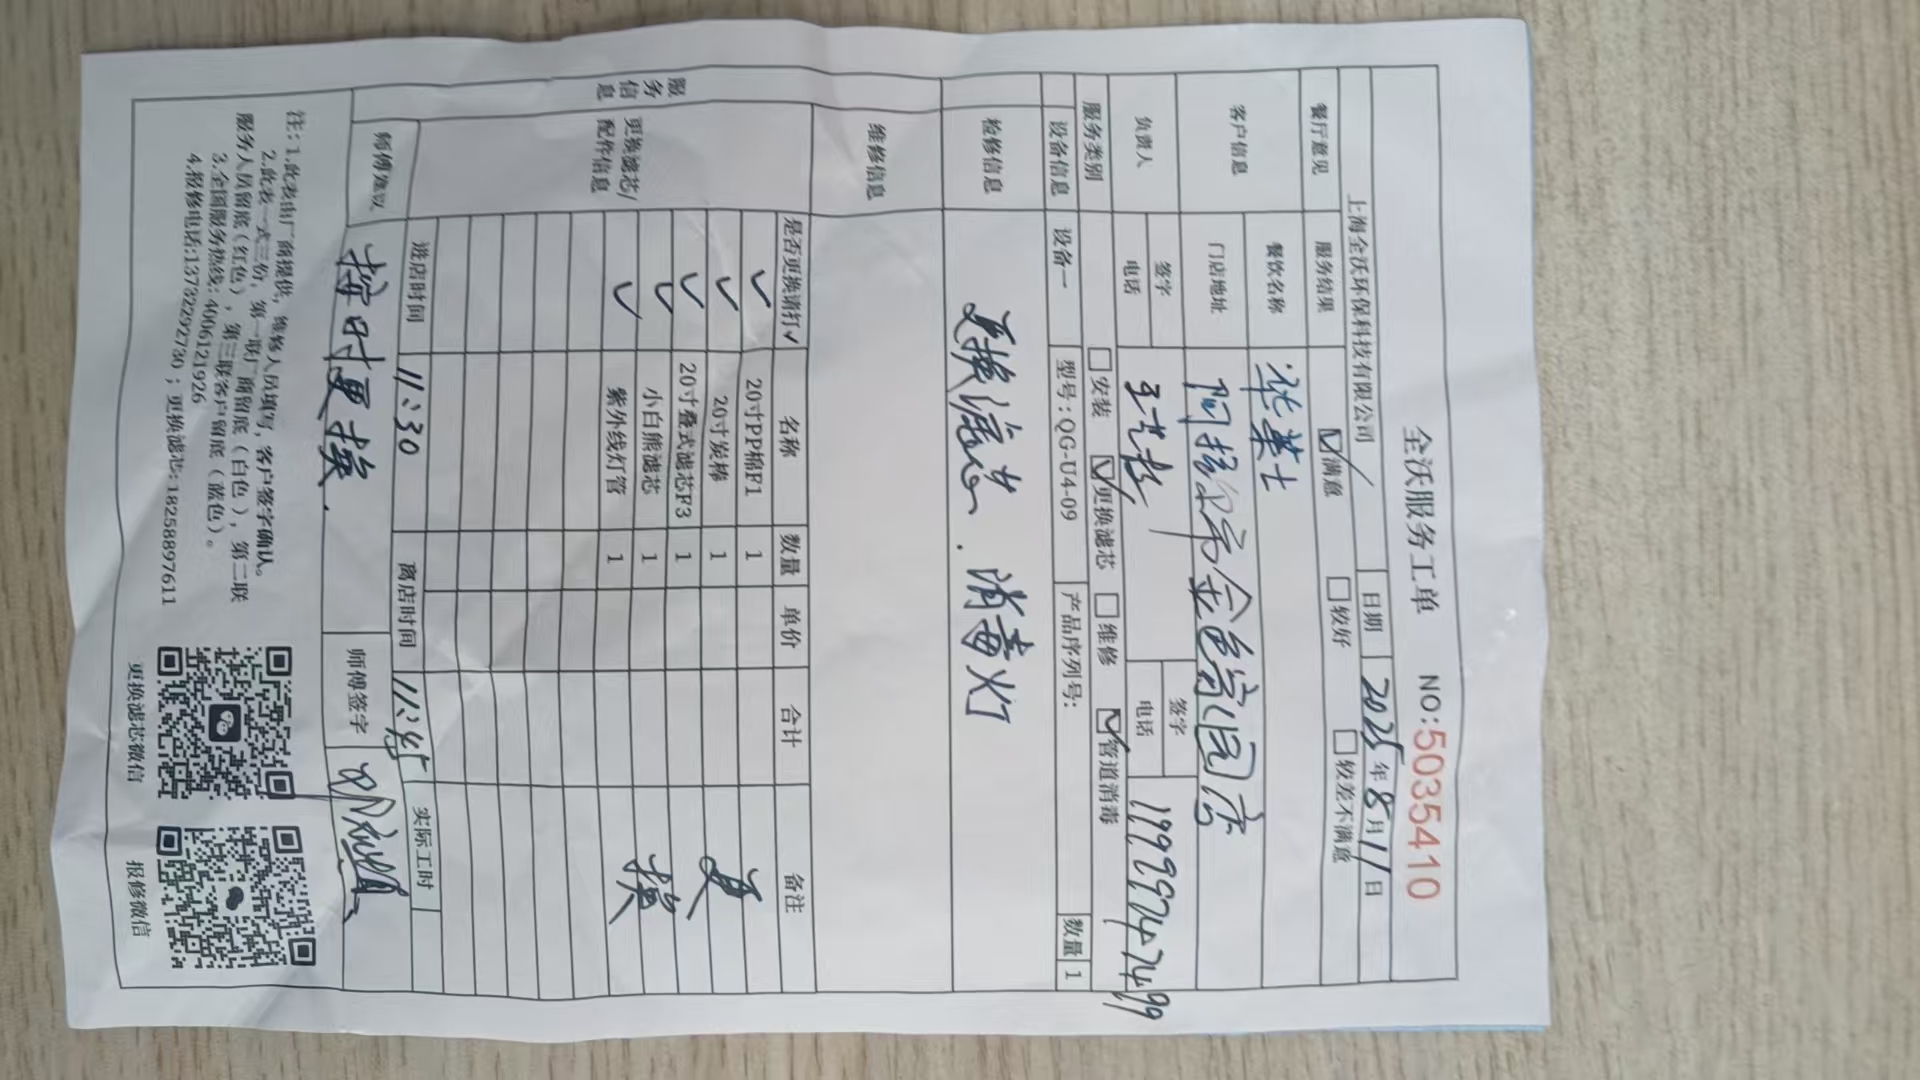 全沃服务工单 NO:5035410
上海全沃环保科技有限公司 日期 2025年8月11日
餐厅意见 服务结果 ☑满意 □较好 □较差不满意
客户信息 餐饮名称 华莱士
门店地址 阿拉尔金
负责人 签字 王 签字
电话 电话 19999747499
服务类别 □安装 ☑更换滤芯 □维修 ☑管道消毒
设备信息 设备一 型号:QG-U4-09 产品序列号: 数量 1
检修信息 更换滤芯、消毒灯
维修信息
服务信息
更换滤芯/配件信息
是否更换请打✓ 名称 数量 单价 合计 备注
✓ 20寸PP棉F1 1 更
✓ 20寸炭棒 1
✓ 20寸叠式滤芯F3 1
✓ 小白熊滤芯 1 换
✓ 紫外线灯管 1
进店时间 11:30 离店时间 11:45 实际工时
师傅建议 按时更换. 师傅签字
注:1.此表由厂商提供,维修人员填写,客户签字确认。
2.此表一式三份,第一联厂商留底(白色),第二联
服务人员留底(红色),第三联客户留底(蓝色)。
3.全国服务热线:4006121926
4.报修电话:13732292730;更换滤芯:18258897611
更换滤芯微信 报修微信